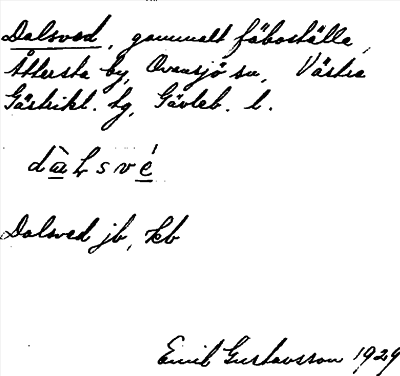 Dalsved, gammalt fäboställe,
Åttersta by, Ovansjö sn, Västra
Gästrikl. tg, Gävleb. l.
Dalsved jb, kb
Emil Gustavsson 1929